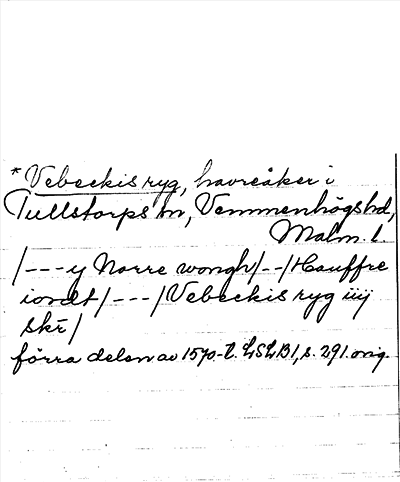 *Vebeckis ryg, havreåker i
Tullstorps sn, Vemmenhögs hd,
Malm. l.
/---y Norre wongh/--/Hauffre
iordt/---/Vebeckis ryg iiij
skr̄/
förra delen av 1570-t. LSLB1, s. 291. orig.